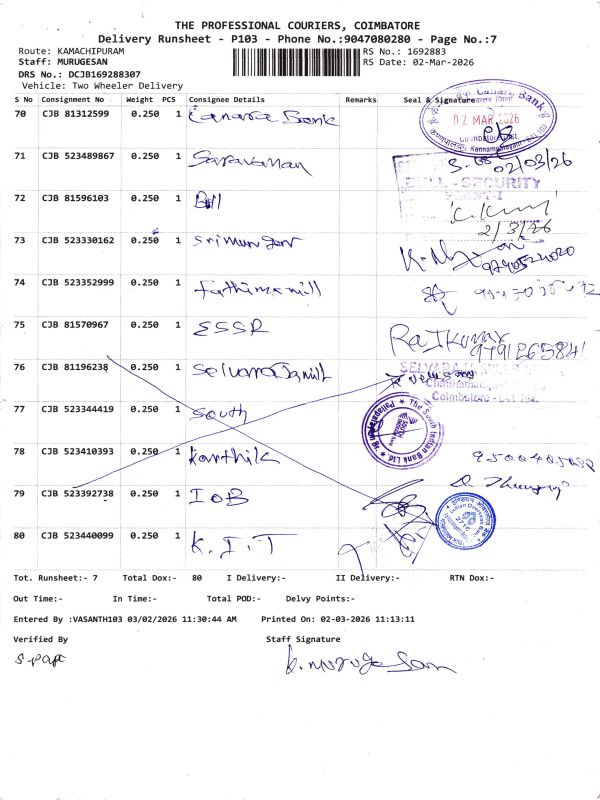 THE PROFESSIONAL COURIERS, COIMBATORE
Delivery Runsheet - P103 - Phone No.:9047080280 - Page No.:7
Route: KAMACHIPURAM
RS No.: 1692883
Staff: MURUGESAN
RS Date: 02-Mar-2026
DRS No.: DCJB169288307
Vehicle: Two Wheeler Delivery
S No Consignment No Weight PCS Consignee Details Remarks Seal & Signature
70 CJB 81312599 0.250 1 Canara Bank
Canara Bank
02 MAR 2026
71 CJB 523489867 0.250 1 Saravanan
02/03/26
SECURITY
72 CJB 81596103 0.250 1 Bill
2/3/26
73 CJB 523330162 0.250 1 Srimurugan
74 CJB 523352999 0.250 1 Fathima mill
75 CJB 81570967 0.250 1 ESSR
RaJKumar
9791265841
76 CJB 81196238 0.250 1 Selvaraja mill
SELVARAJA
Coimbatore
77 CJB 523344419 0.250 1 South
The South Indian Bank Ltd.
78 CJB 523410393 0.250 1 Karthik
79 CJB 523392738 0.250 1 IOB
Indian Overseas Bank
80 CJB 523440099 0.250 1 K.I.T
Tot. Runsheet:- 7 Total Dox:- 80 I Delivery:- II Delivery:- RTN Dox:-
Out Time:- In Time:- Total POD:- Delvy Points:-
Entered By :VASANTH103 03/02/2026 11:30:44 AM Printed On: 02-03-2026 11:13:11
Verified By Staff Signature
b.murugesan